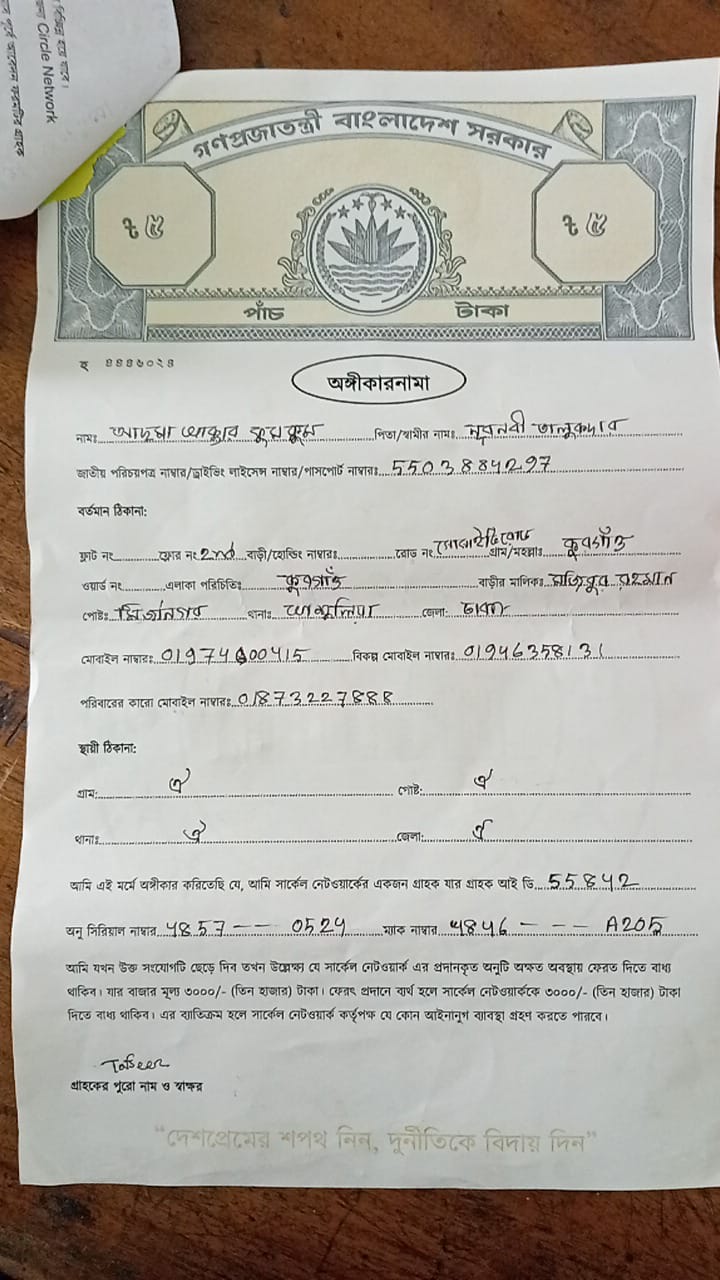 বিচ্ছিন্ন হয়ে যাবে।
Circle Network
গণপ্রজাতন্ত্রী বাংলাদেশ সরকার
৳ ৫
৳ ৫
পাঁচ টাকা
অঙ্গীকারনামা
নামঃ আক্তার কুমকুম পিতা/স্বামীর নামঃ নূরনবী তালুকদার
জাতীয় পরিচয়পত্র নাম্বার/ড্রাইভিং লাইসেন্স নাম্বার/পাসপোর্ট নাম্বারঃ 5503884297
বর্তমান ঠিকানা:
ফ্লাট নং ফ্লোর নং 2nd বাড়ী/হোল্ডিং নাম্বারঃ রোড নং সোসাইটি রোড গ্রাম/মহল্লাঃ কুরগাঁও
ওয়ার্ড নং এলাকা পরিচিতিঃ কুরগাঁও বাড়ীর মালিকঃ মজিবুর রহমান
পোষ্টঃ মির্জানগর থানাঃ আশুলিয়া জেলা: ঢাকা
মোবাইল নাম্বারঃ 01974600415 বিকল্প মোবাইল নাম্বারঃ 01946358131
পরিবারের কারো মোবাইল নাম্বারঃ 01873227888
স্থায়ী ঠিকানা:
গ্রাম: ঐ পোষ্ট: ঐ
থানাঃ ঐ জেলা: ঐ
আমি এই মর্মে অঙ্গীকার করিতেছি যে, আমি সার্কেল নেটওয়ার্কের একজন গ্রাহক যার গ্রাহক আই ডি 55842
অনু সিরিয়াল নাম্বার 4857 -- 0524 ম্যাক নাম্বার 4846 - - - A205
আমি যখন উক্ত সংযোগটি ছেড়ে দিব তখন উল্লেক্ষ্য যে সার্কেল নেটওয়ার্ক এর প্রদানকৃত অনুটি অক্ষত অবস্থায় ফেরত দিতে বাধ্য
থাকিব। যার বাজার মূল্য ৩০০০/- (তিন হাজার) টাকা। ফেরৎ প্রদানে ব্যর্থ হলে সার্কেল নেটওয়ার্ককে ৩০০০/- (তিন হাজার) টাকা
দিতে বাধ্য থাকিব। এর ব্যতিক্রম হলে সার্কেল নেটওয়ার্ক কর্তৃপক্ষ যে কোন আইনানুগ ব্যবস্থা গ্রহণ করতে পারবে।
গ্রাহকের পুরো নাম ও স্বাক্ষর
"দেশপ্রেমের শপথ নিন, দুর্নীতিকে বিদায় দিন"